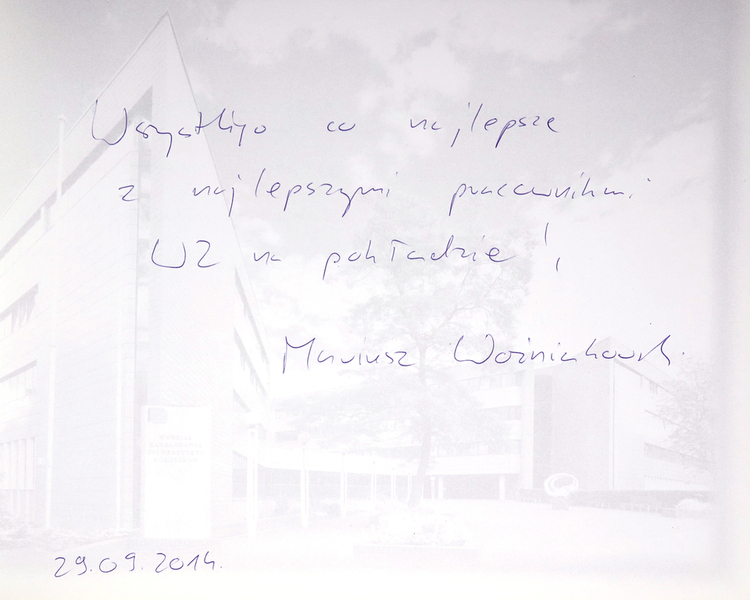 Wszystkigo co najlepsze
z najlepszymi pracownikami
WZ na pokładzie!
Mariusz Woźniakowski
29.09.2014.